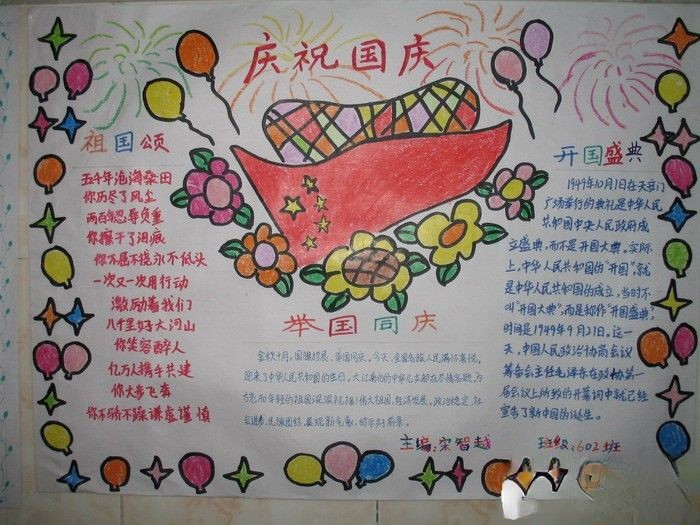 庆祝国庆
祖国颂
五千年沧海桑田
你历尽了风尘
两百年忍辱负重
你擦干了泪痕
你不屈不挠永不低头
一次又一次用行动
激励着我们
八千里好大河山
你笑容醉人
亿万人携手共建
你大步飞奔
你不骄不躁谦虚谨慎
举国同庆
金秋十月，国旗招展、举国同庆。今天，全国各族人民满怀喜悦，
迎来了中华人民共和国的生日。大江南北的中华儿女都在尽情高歌，为
古老而年轻的祖国深深祝福：伟大祖国，经济发展，政治稳定，社
会进步，民族团结，展现新元气，昭示好前景。
开国盛典
1949年10月1日在天安门
广场举行的典礼是中华人民
共和国中央人民政府成
立盛典，而不是开国大典。实际
上，中华人民共和国的“开国”，就
是中华人民共和国的成立，当时不
叫“开国大典”，而是却作“开国盛典”，
时间是1949年9月21日。这一
天，中国人民政治协商会议
筹备会主任毛泽东在政协第一
届会议上所致的开幕词中就已经
宣告了新中国的诞生。
主编：宋智越
班级：602班